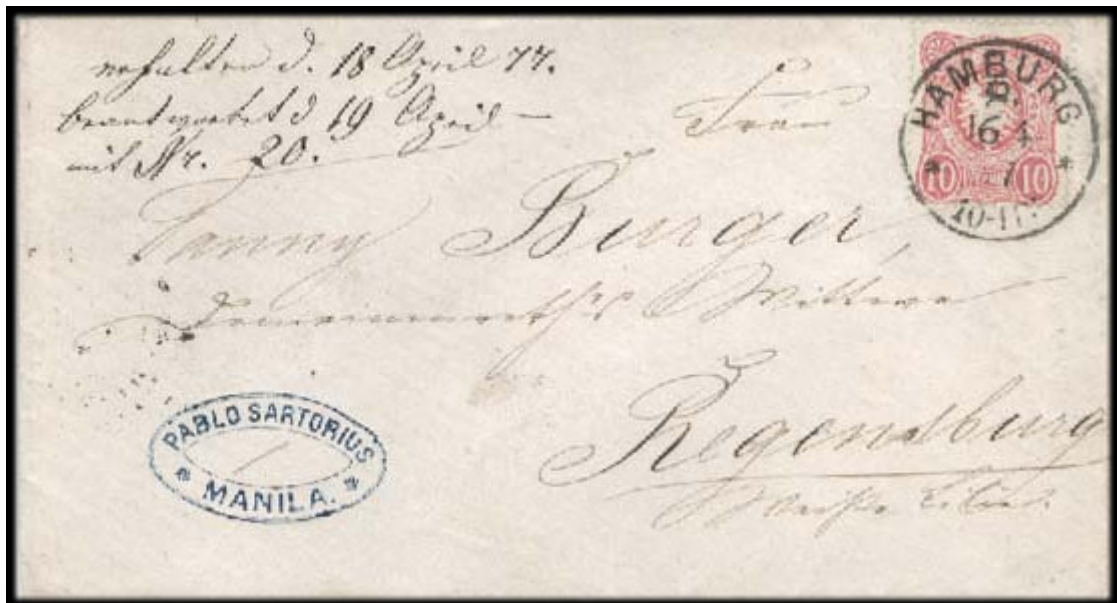 erhalten d. 18 April 77.
beantwortet d 19 April –
mit Nr. 20.
Frau
Fanny Burger,
Wittwe
Regensburg
Weiße Lilie.
HAMBURG
16 4
10-11
10 10
PABLO SARTORIUS
MANILA.